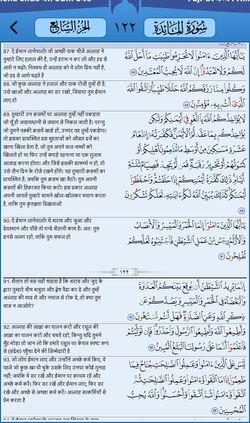 الجزء السابع
١٢٢
سورة المائدة
87. ऐ ईमान लानेवालो! जो अच्छी पाक चीज़े अल्लाह ने
तुम्हारे लिए हलाल की है, उन्हें हराम न कर लो और हद से
आगे न बढ़ो। निश्चय ही अल्लाह को वे लोग प्रिय नहीं है,
जो हद से आगे बढ़ते है
يَٰٓأَيُّهَا ٱلَّذِينَ ءَامَنُواْ لَا تُحَرِّمُواْ طَيِّبَٰتِ مَآ أَحَلَّ ٱللَّهُ
لَكُمْ وَلَا تَعْتَدُوٓاْ إِنَّ ٱللَّهَ لَا يُحِبُّ ٱلْمُعْتَدِينَ
88. जो कुछ अल्लाह ने हलाल और पाक रोज़ी तुम्हें दी है,
उसे खाओ और अल्लाह का डर रखो, जिसपर तुम ईमान
लाए हो
وَكُلُواْ مِمَّا رَزَقَكُمُ ٱللَّهُ حَلَٰلًا طَيِّبًا وَٱتَّقُواْ ٱللَّهَ
ٱلَّذِىٓ أَنتُم بِهِۦ مُؤْمِنُونَ
89. तुम्हारी उन क़समों पर अल्लाह तुम्हें नहीं पकड़ता
जो यूँ ही असावधानी से ज़बान से निकल जाती है। परन्तु
जो तुमने पक्की क़समें खाई हों, उनपर वह तुम्हें पकड़ेगा।
तो इसका प्रायश्चित दस मुहताजों को औसत दर्जें का
खाना खिला देना है, जो तुम अपने बाल-बच्चों को
खिलाते हो या फिर उन्हें कपड़े पहनाना या एक ग़ुलाम
आज़ाद करना होगा। और जिसे इसकी सामर्थ्य न हो, तो
उसे तीन दिन के रोज़े रखने होंगे। यह तुम्हारी क़समों का
प्रायश्चित है, जबकि तुम क़सम खा बैठो। तुम अपनी
क़समों की हिफ़ाजत किया करो। इस प्रकार अल्लाह
अपनी आयतें तुम्हारे सामने खोल-खोलकर बयान करता
है, ताकि तुम कृतज्ञता दिखलाओ
لَا يُؤَاخِذُكُمُ ٱللَّهُ بِٱللَّغْوِ فِىٓ أَيْمَٰنِكُمْ وَلَٰكِن
يُؤَاخِذُكُم بِمَا عَقَّدتُّمُ ٱلْأَيْمَٰنَ فَكَفَّٰرَتُهُۥٓ إِطْعَامُ
عَشَرَةِ مَسَٰكِينَ مِنْ أَوْسَطِ مَا تُطْعِمُونَ أَهْلِيكُمْ
أَوْ كِسْوَتُهُمْ أَوْ تَحْرِيرُ رَقَبَةٍ فَمَن لَّمْ يَجِدْ فَصِيَامُ ثَلَٰثَةِ
أَيَّامٍ ذَٰلِكَ كَفَّٰرَةُ أَيْمَٰنِكُمْ إِذَا حَلَفْتُمْ وَٱحْفَظُوٓاْ
أَيْمَٰنَكُمْ كَذَٰلِكَ يُبَيِّنُ ٱللَّهُ لَكُمْ ءَايَٰتِهِۦ لَعَلَّكُمْ تَشْكُرُونَ
90. ऐ ईमान लानेवालो! ये शराब और जुआ और
देवस्थान और पाँसे तो गन्दे शैतानी काम है। अतः तुम
इनसे अलग रहो, ताकि तुम सफल हो
يَٰٓأَيُّهَا ٱلَّذِينَ ءَامَنُوٓاْ إِنَّمَا ٱلْخَمْرُ وَٱلْمَيْسِرُ وَٱلْأَنصَابُ
وَٱلْأَزْلَٰمُ رِجْسٌ مِّنْ عَمَلِ ٱلشَّيْطَٰنِ فَٱجْتَنِبُوهُ لَعَلَّكُمْ
تُفْلِحُونَ
١٢٢
91. शैतान तो बस यही चाहता है कि शराब और जुए के
द्वारा तुम्हारे बीच शत्रुता और द्वेष पैदा कर दे और तुम्हें
अल्लाह की याद से और नमाज़ से रोक दे, तो क्या तुम
बाज़ न आओगे?
إِنَّمَا يُرِيدُ ٱلشَّيْطَٰنُ أَن يُوقِعَ بَيْنَكُمُ ٱلْعَدَٰوَةَ
وَٱلْبَغْضَآءَ فِى ٱلْخَمْرِ وَٱلْمَيْسِرِ وَيَصُدَّكُمْ عَن ذِكْرِ
ٱللَّهِ وَعَنِ ٱلصَّلَوٰةِ فَهَلْ أَنتُم مُّنتَهُونَ
92. अल्लाह की आज्ञा का पालन करो और रसूल की
आज्ञा का पालन करो और बचते रहो, किन्तु यदि तुमने
मुँह मोड़ा तो जान लो कि हमारे रसूल पर केवल स्पष्ट रूप
से (संदेश) पहुँचा देने की ज़िम्मेदारी है
وَأَطِيعُواْ ٱللَّهَ وَأَطِيعُواْ ٱلرَّسُولَ وَٱحْذَرُواْ فَإِن تَوَلَّيْتُمْ
فَٱعْلَمُوٓاْ أَنَّمَا عَلَىٰ رَسُولِنَا ٱلْبَلَٰغُ ٱلْمُبِينُ
93. जो लोग ईमान लाए और उन्होंने अच्छे कर्म किए, वे
पहले जो कुछ खा-पी चुके उसके लिए उनपर कोई गुनाह
नहीं; जबकि वे डर रखें और ईमान पर क़ायम रहें और
अच्छे कर्म करें। फिर डर रखें और ईमान लाए, फिर डर
रखें और अच्छे से अच्छा कर्म करें। अल्लाह सत्कर्मियों से
प्रेम करता है
لَيْسَ عَلَى ٱلَّذِينَ ءَامَنُواْ وَعَمِلُواْ ٱلصَّٰلِحَٰتِ جُنَاحٌ فِيمَا
طَعِمُوٓاْ إِذَا مَا ٱتَّقَواْ وَّءَامَنُواْ وَعَمِلُواْ ٱلصَّٰلِحَٰتِ ثُمَّ
ٱتَّقَواْ وَّءَامَنُواْ ثُمَّ ٱتَّقَواْ وَّأَحْسَنُواْ وَٱللَّهُ يُحِبُّ ٱلْمُحْسِنِينَ